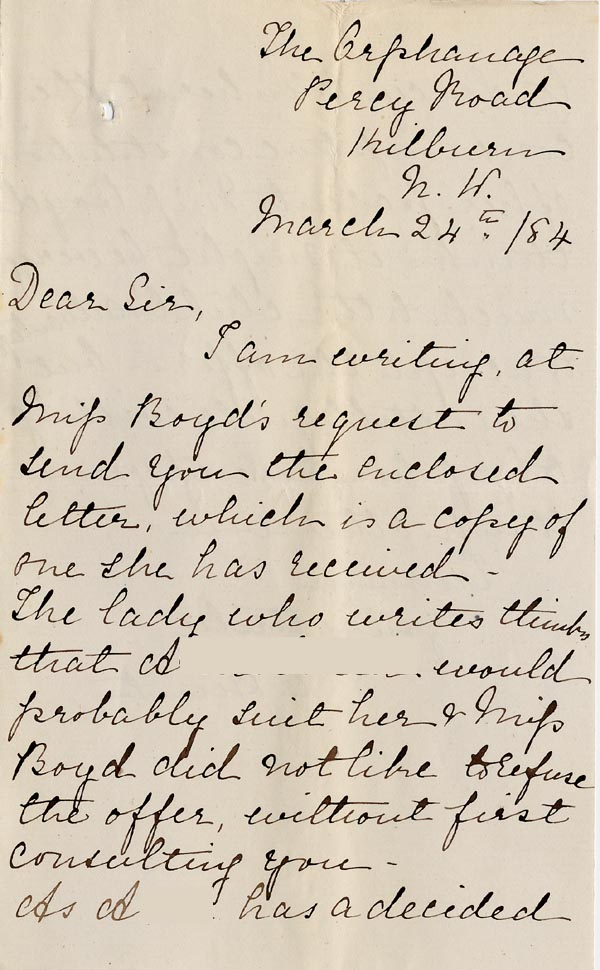 The Orphanage
Percy Road
Kilburn
N. W.
March 24th /84
Dear Sir,
I am writing, at
Miss Boyd's request to
send you the enclosed
letter, which is a copy of
one she has received -
The lady who writes thinks
that A would
probably suit her & Miss
Boyd did not like to refuse
the offer, without first
consulting you -
As A has a decided